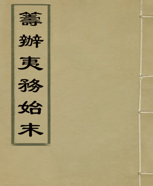 籌辦夷務始末